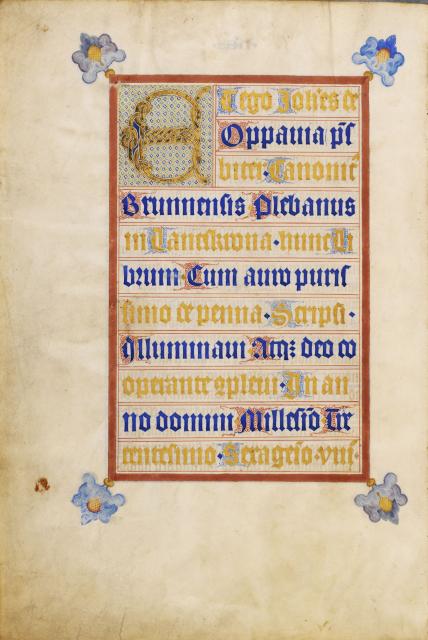 Et ego Johes de
Oppauia pr̄s
biter. Canonic᷒
Brunnensis Plebanus
in Lanczkrona. hunc li
brum. Cum auro puris
simo de penna. Scripsi.
Illuminaui. Atqȝ deo co
operante ꝯpleui. In an
no domini Millesīo Tre
centesimo. Sexagesīo. viii